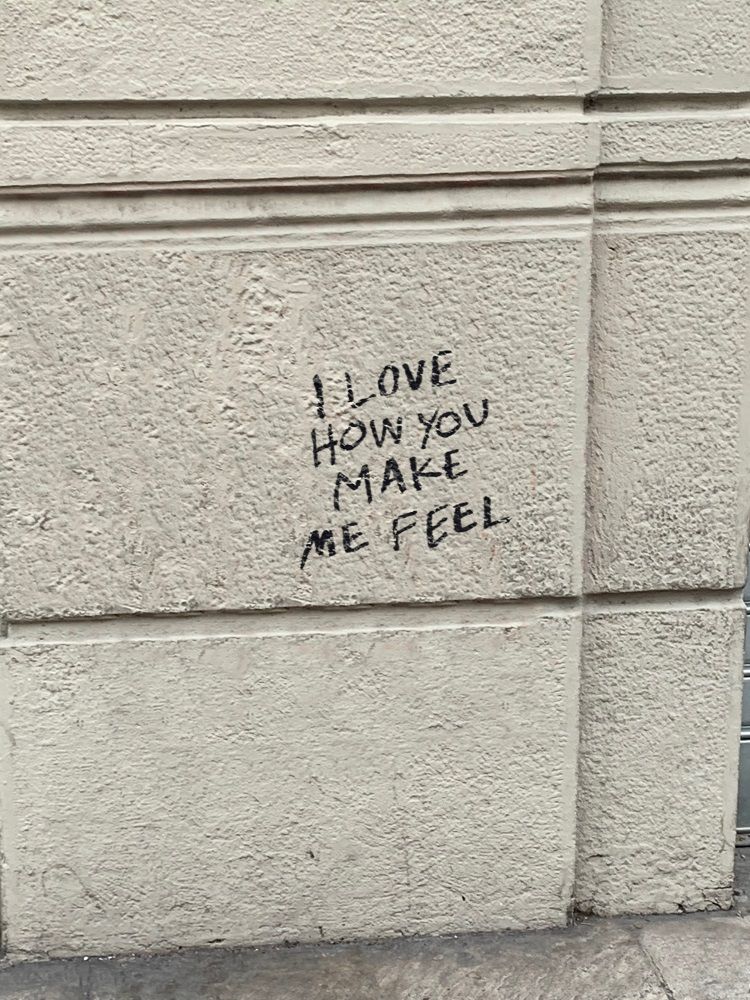 I LOVE
HOW YOU
MAKE
ME FEEL